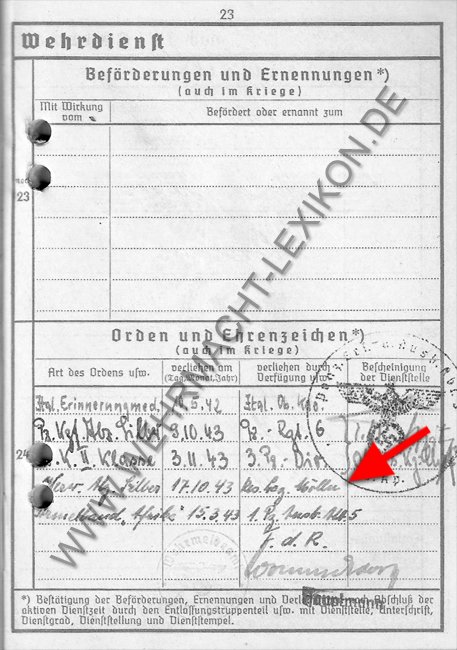 23
Wehrdienst
Beförderungen und Ernennungen*)
(auch im Kriege)
Mit Wirkung vom
Befördert oder ernannt zum
23
Orden und Ehrenzeichen*)
(auch im Kriege)
Art des Ordens usw.
verliehen am (Tag, Monat, Jahr)
verliehen durch Verfügung
Bescheinigung der Dienststelle
Ital. Erinnerungmed. 5.42 Ital. Ob. Kdo.
Pz. Kpf. Abz. Silber 3.10.43 Pz.-Rgt. 6
24
K. II Klasse 3.11.43 3. Pz.-Div.
Verw. Abz. Silber 17.10.43 Res. Laz. Mölln
"Afrika" 15.3.43 1. Pz. Ausb. Abt. 5
F. d. R.
Hauptmann
*) Bestätigung der Beförderungen, Ernennungen und Verleihungen nach Abschluß der
aktiven Dienstzeit durch den Entlassungstruppenteil usw. mit Dienststelle, Unterschrift,
Dienstgrad, Dienststellung und Dienststempel.
WWW.WEHRMACHT-LEXIKON.DE